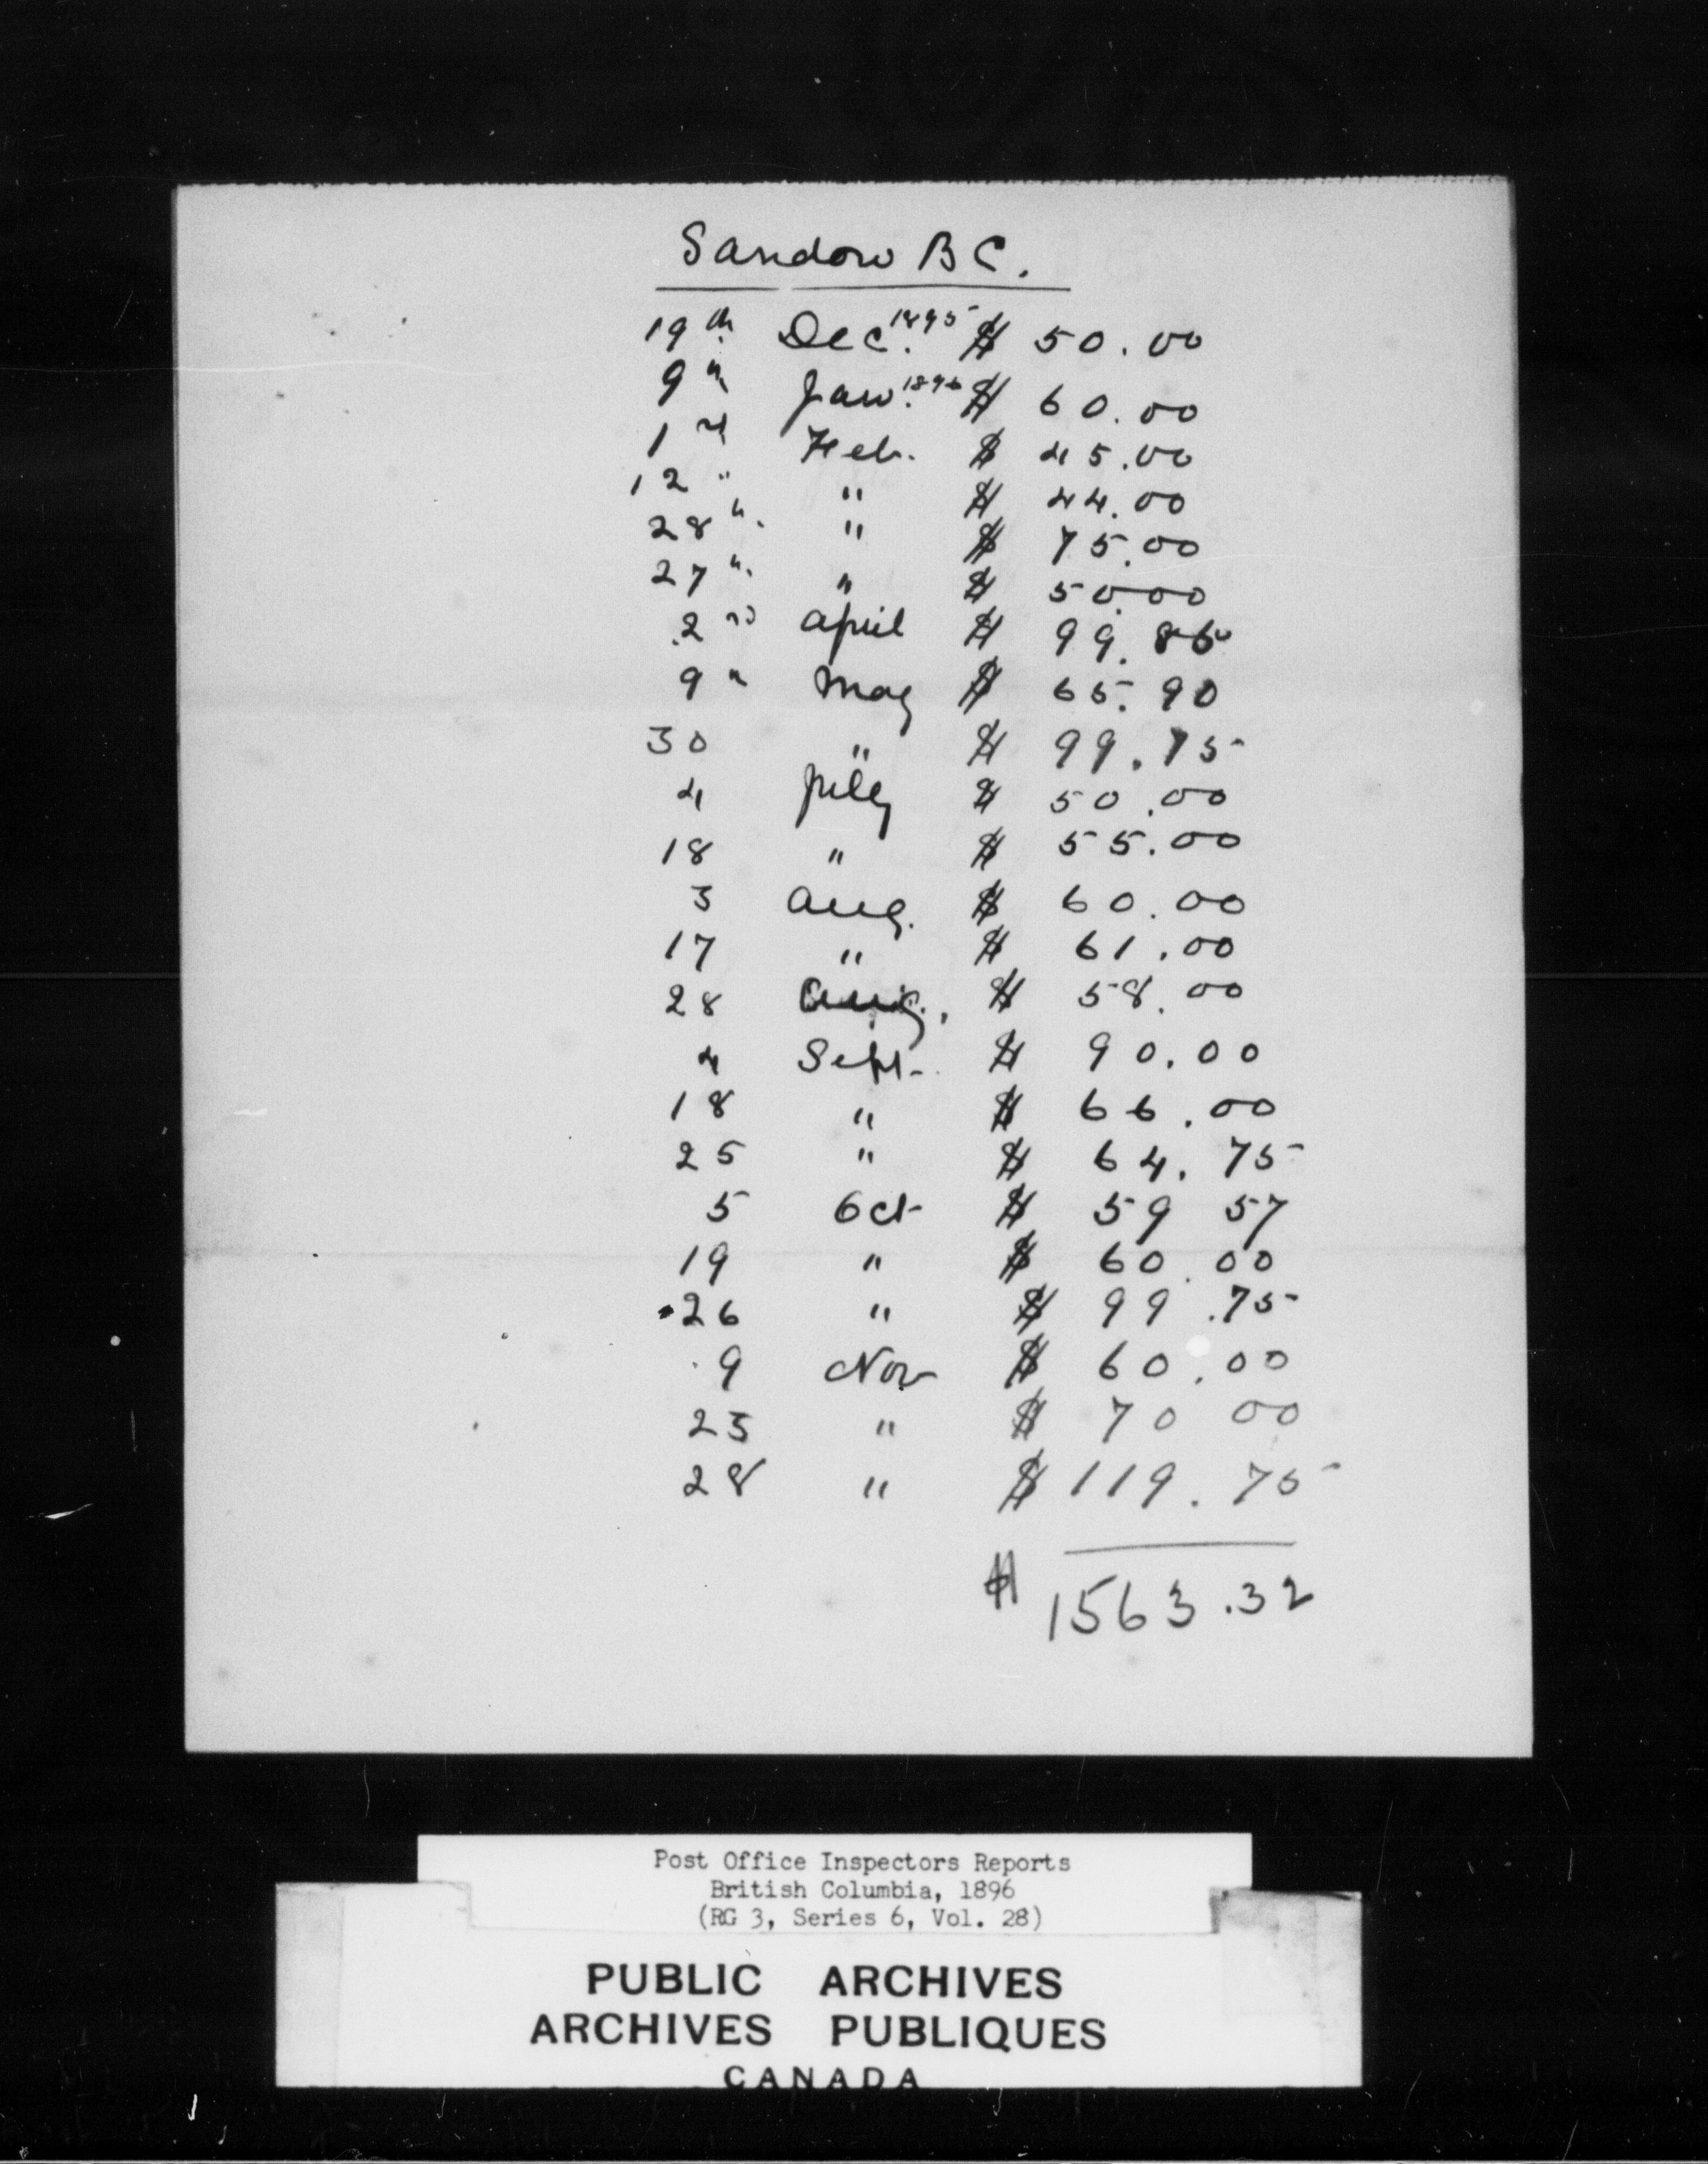 Sandow B C.
19th. Dec. 1895 $ 50.00
9th Jan. 1896 $ 60.00
1st Feb. $ 45.00
12 " " $ 44.00
28 ". " $ 75.00
27 ". " $ 50.00
2nd April $ 99.85
9th May $ 65.90
30 " $ 99.75
4 July $ 50.00
18 " $ 55.00
3 Aug. $ 60.00
17 " $ 61.00
28 Aug. $ 58.00
4 Sept. $ 90.00
18 " $ 66.00
25 " $ 64.75
5 Oct $ 59 57
19 " $ 60.00
26 " $ 99.75
9 Nov $ 60.00
23 " $ 70 00
28 " $ 119.75
$ 1563.32
Post Office Inspectors Reports
British Columbia, 1896
(RG 3, Series 6, Vol. 28)
PUBLIC ARCHIVES
ARCHIVES PUBLIQUES
CANADA